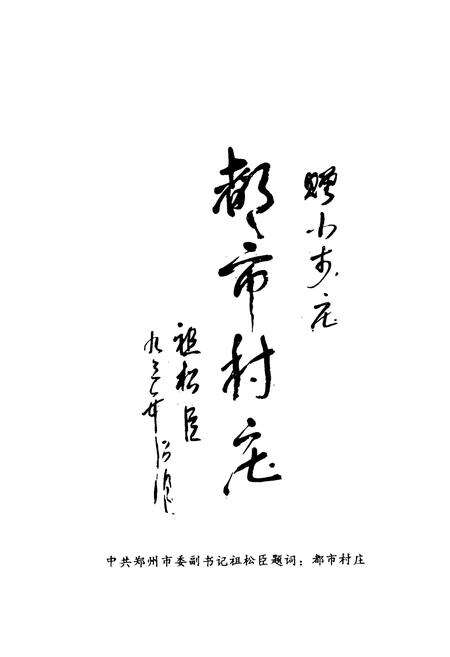 赠小步庄
都市村庄
祖松臣
九三年
中共郑州市委副书记祖松臣题词：都市村庄